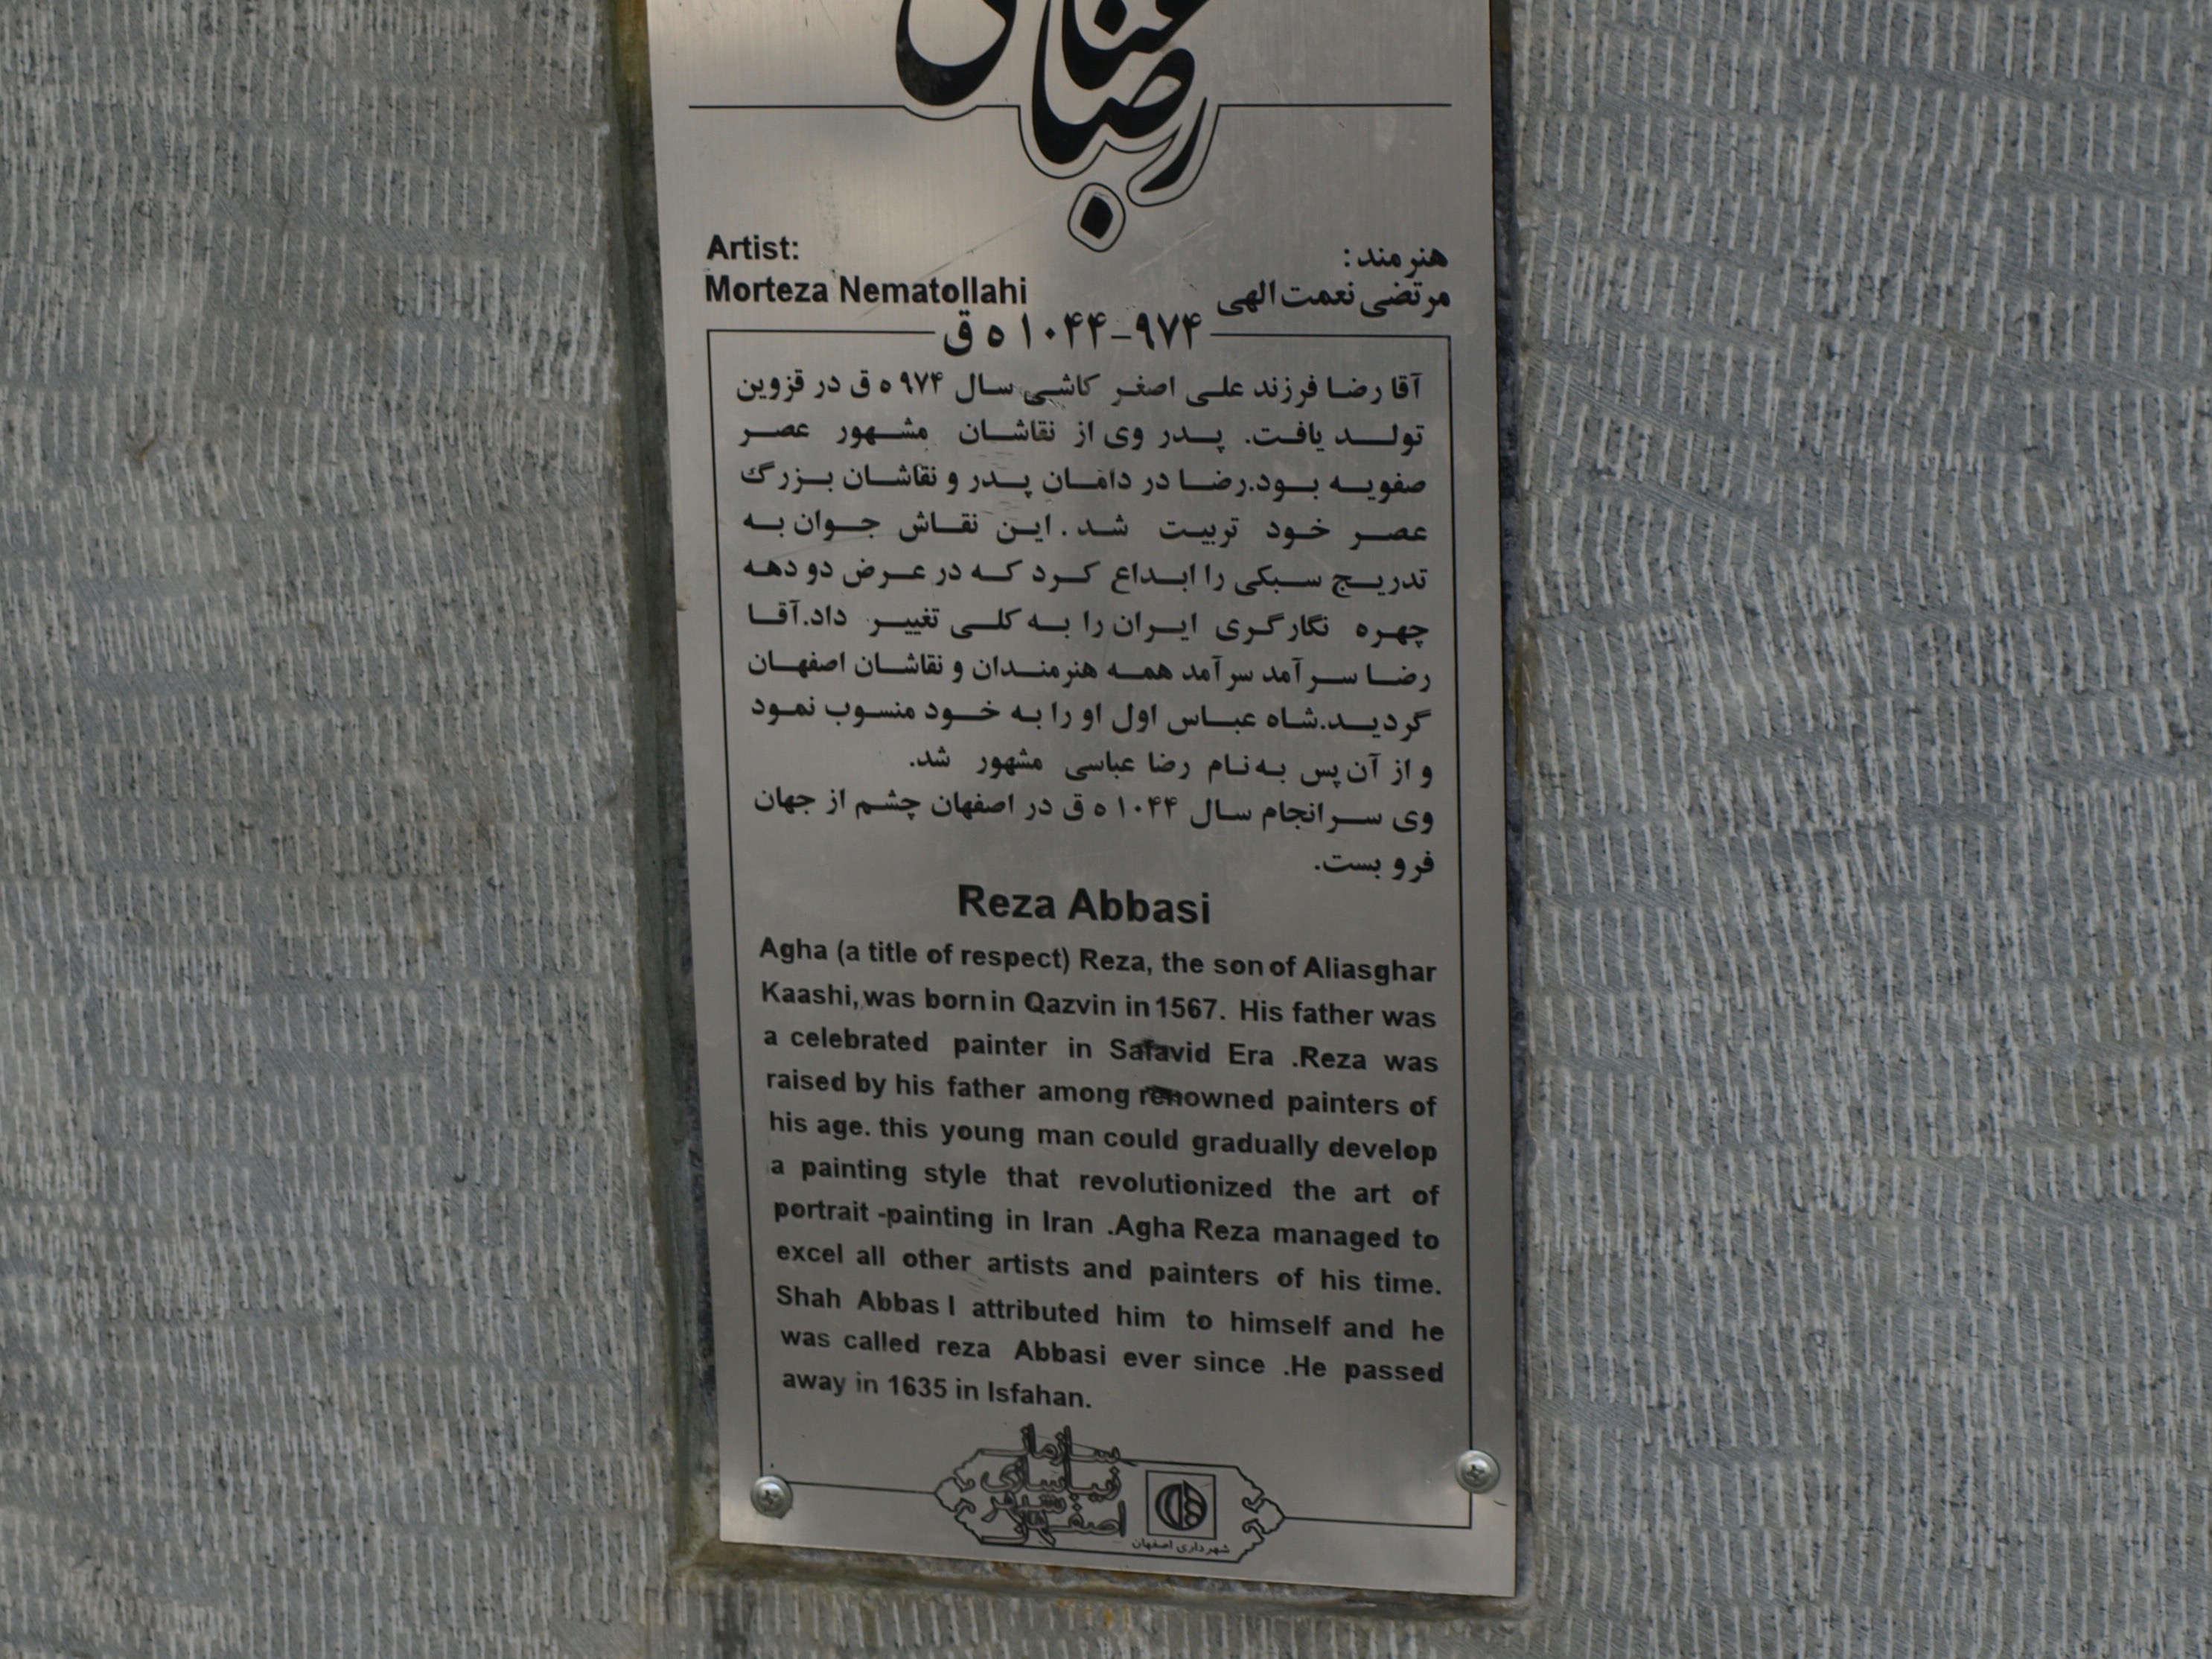 رضا عباسی
Artist:
Morteza Nematollahi
هنرمند:
مرتضی نعمت الهی
۹۷۴-۱۰۴۴ ه ق
آقا رضا فرزند علی اصغر کاشی سال ۹۷۴ ه ق در قزوین
تولد یافت. پدر وی از نقاشان مشهور عصر
صفویه بود.رضا در دامان پدر و نقاشان بزرگ
عصر خود تربیت شد. این نقاش جوان به
تدریج سبکی را ابداع کرد که در عرض دو دهه
چهره نگارگری ایران را به کلی تغییر داد.آقا
رضا سرآمد سرآمد همه هنرمندان و نقاشان اصفهان
گردید.شاه عباس اول او را به خود منسوب نمود
و از آن پس به نام رضا عباسی مشهور شد.
وی سرانجام سال ۱۰۴۴ ه ق در اصفهان چشم از جهان
فرو بست.
Reza Abbasi
Agha (a title of respect) Reza, the son of Aliasghar
Kaashi, was born in Qazvin in 1567. His father was
a celebrated painter in Safavid Era .Reza was
raised by his father among renowned painters of
his age. this young man could gradually develop
a painting style that revolutionized the art of
portrait -painting in Iran .Agha Reza managed to
excel all other artists and painters of his time.
Shah Abbas I attributed him to himself and he
was called reza Abbasi ever since .He passed
away in 1635 in Isfahan.
سازمان
زیباسازی
شهر
اصفهان
شهرداری اصفهان